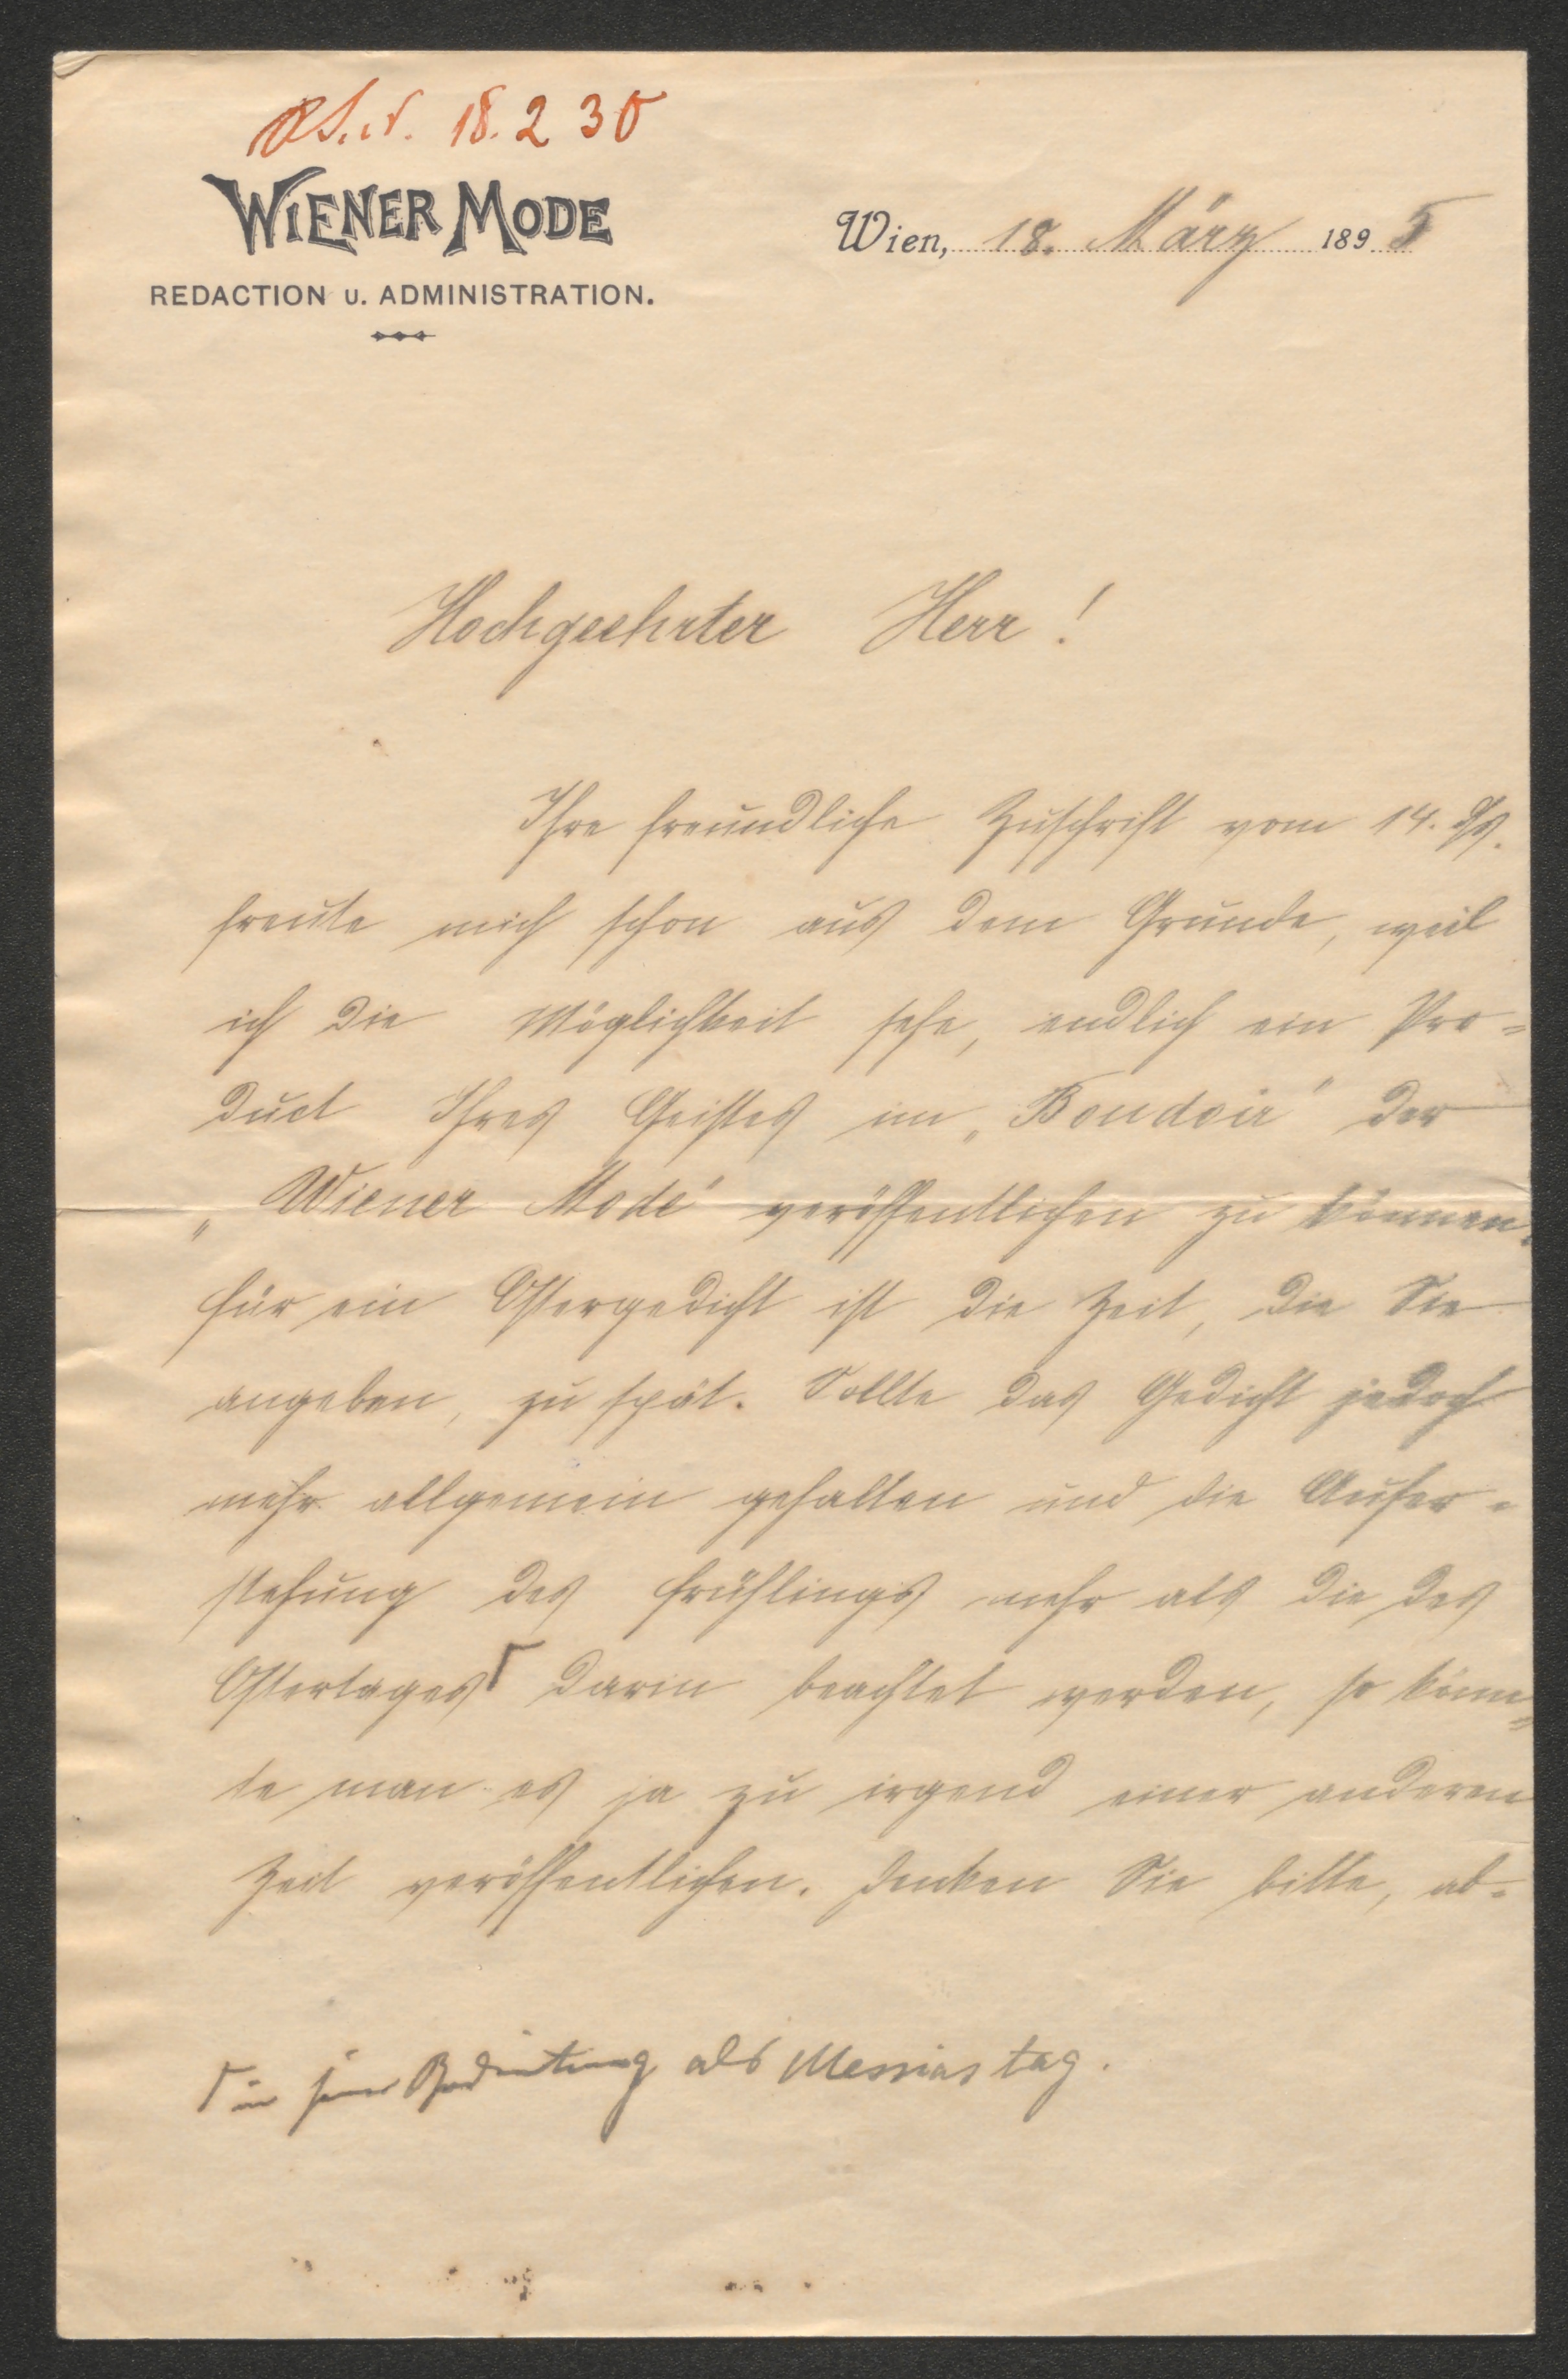 18.2 30
WIENER MODE
REDACTION u. ADMINISTRATION.
Wien, 18. März 1895
Hochgeehrter Herr!
Ihre freundliche Zuschrift vom 14. ds.
freute mich schon aus dem Grunde, weil
ich die Möglichkeit sehe, endlich ein Pro=
duct Ihres Geistes im „Boudoir" der
„Wiener Mode" veröffentlichen zu können.
Für ein Ostergedicht ist die Zeit, die Sie
angeben, zu spät. Sollte das Gedicht jedoch
mehr allgemein gehalten und die Aufer-
stehung des Frühlings mehr als die des
Ostertages ⌈ darin beachtet werden, so könn=
te man es ja zu irgend einer anderen
Zeit veröffentlichen. Denken Sie bitte, ab-
⌈ in seiner Bedeutung als Messiastag.